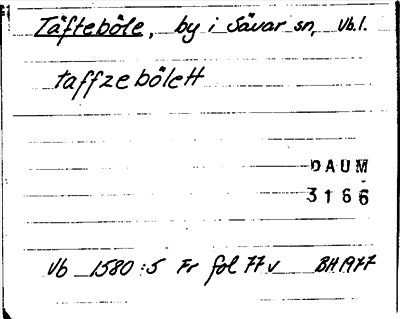 Täfteböle, by i Sävar sn, Vb.l.
taffzebölett
DAUM
3166
Vb 1580:5 Fr fol 77 v BH 1977